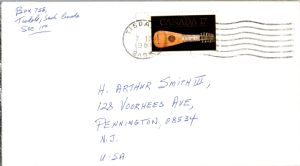 Box 752,
Tisdale, Sask. Canada
S0E 1T0
TISDA
CANADA 17
H. ARTHUR SMITH III,
128 VOORHEES AVE,
PENNINGTON, 08534
N.J.
U.S.A